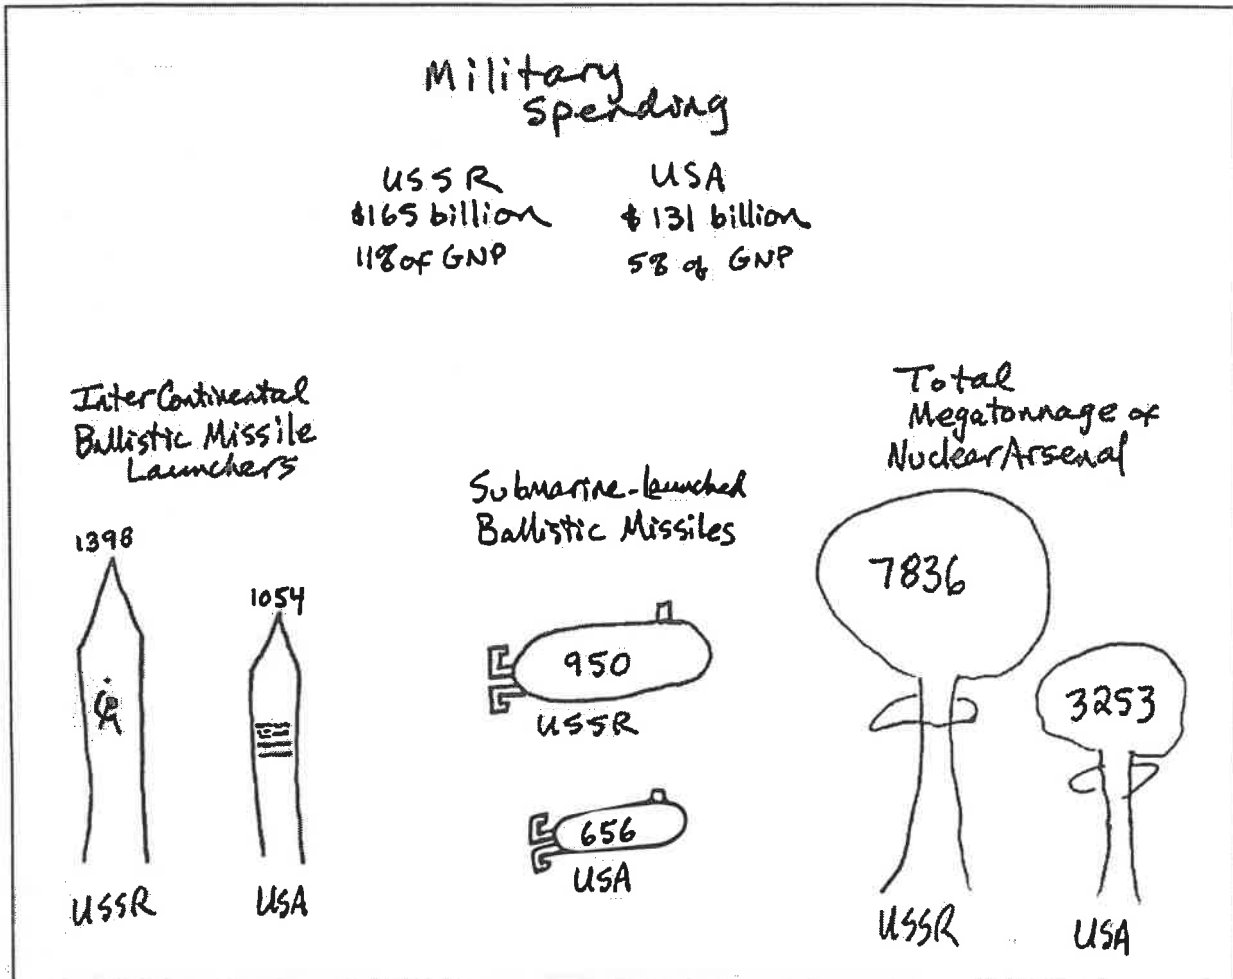 Military
Spending
USSR
$165 billion
11% of GNP
USA
$131 billion
5% of GNP
InterContinental
Ballistic Missile
Launchers
1398
USSR
1054
USA
Submarine-launched
Ballistic Missiles
950
USSR
656
USA
Total
Megatonnage of
Nuclear Arsenal
7836
USSR
3253
USA